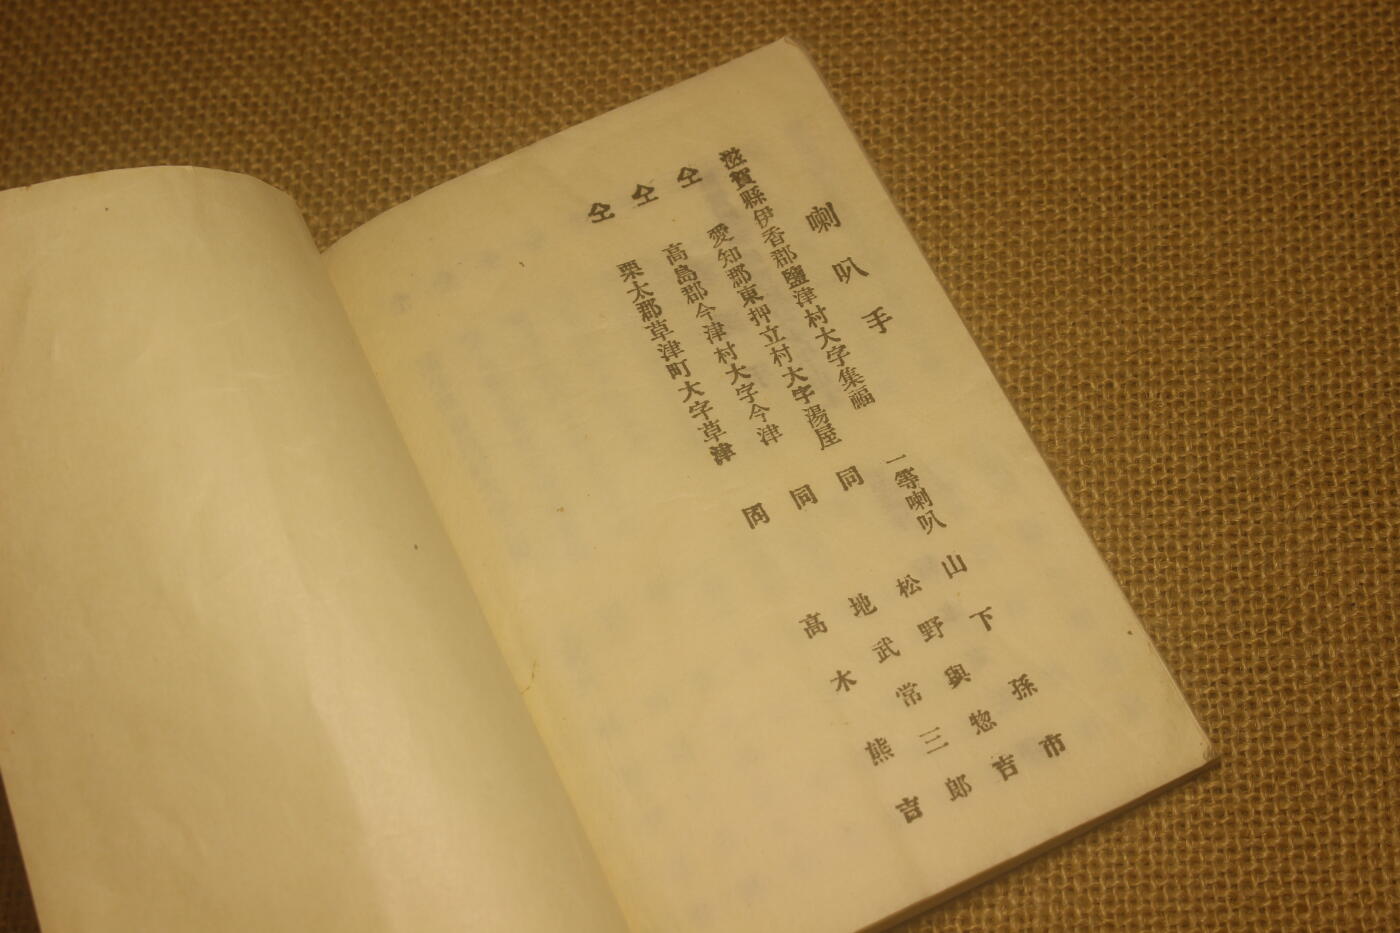 喇叭手
滋賀縣伊香郡鹽津村大字集福 一等喇叭 山下孫市
仝 愛知郡東押立村大字湯屋 同 松野與惣吉
仝 高島郡今津村大字今津 同 地武常三郎
仝 栗太郡草津町大字草津 同 高木熊吉